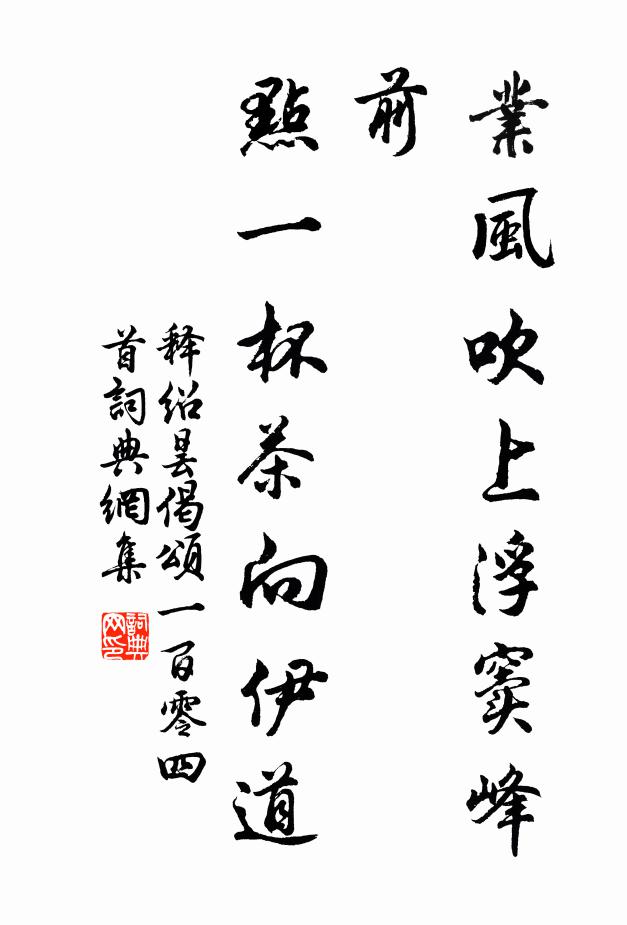 業風吹上浮竇峰
前
點一杯茶向伊道
释绍曇偈頌一百零四
首詞典網集
詞典
网印